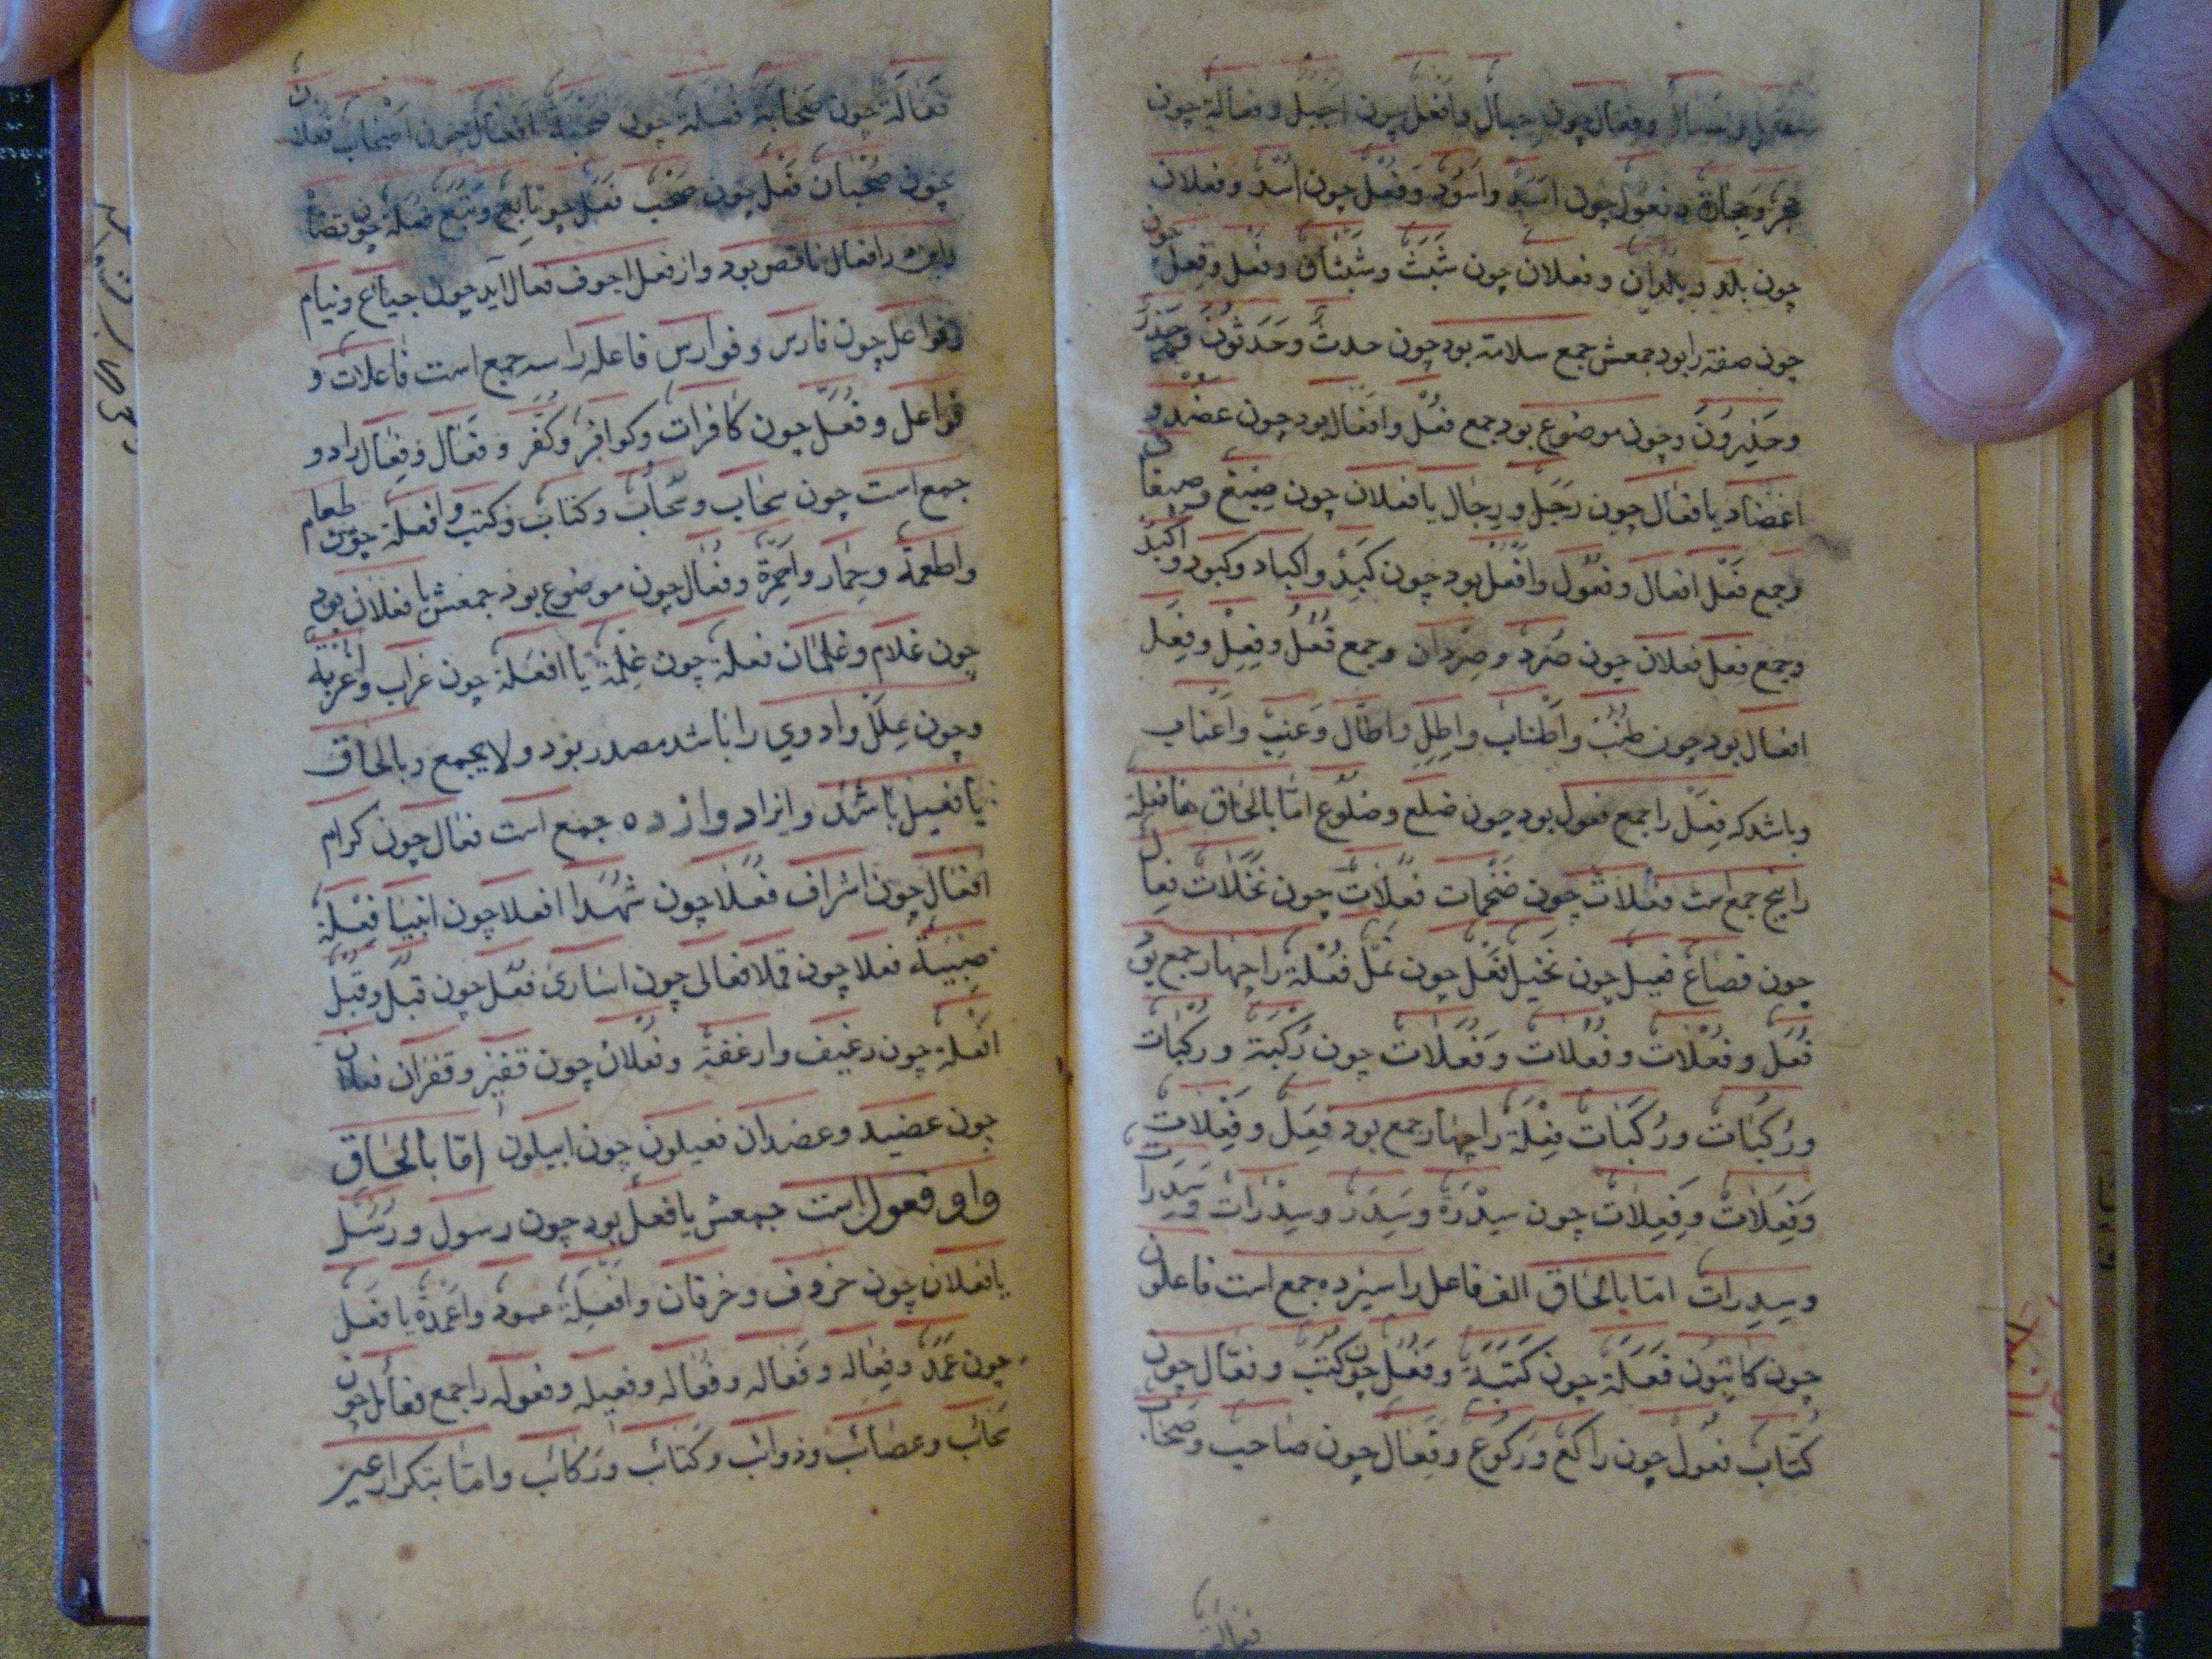 وفعال چون جبال وافعل چون اجبل وفعالة چون
حجر وحجارة وفعول چون اسد واسود وفعل چون اسد وفعلان
چون بلد وبلدان وفعلان چون شبث وشبثان وفعل وفعل چون
چون صفة را بود جمعش جمع سلامة بود چون حدث وحدثون وحذر
وحذرون وچون موضوع بود جمع فعل وافعال بود چون عضد و
اعضاد یا فعال چون رجل ورجال یا فعلان چون ضبع وضبعان
وجمع فعل افعال وفعول وافعل بود چون كبد واكباد وكبود واكبد
وجمع فعل فعلان چون صرد وصردان وجمع فعل وفعل وفعل
افعال بود چون طنب واطناب واطل واطال وعنب واعناب
وباشد كه فعل را جمع فعول بود چون ضلع وضلوع اما بالحاق ها فعلة
را پنج جمع است فعلات چون ضخمات فعلات چون نخلات فعال
چون قصاع فعيل چون نخيل فعل چون نمل فعلة را چهار جمع بود
فعل وفعلات وفعلات وفعلات چون ركبة وركبات
وركبات وركبات فعلة را چهار جمع بود فعل وفعلات
وفعلات وفعلات چون سدرة وسدر وسدرات وسدرات
وسدرات اما بالحاق الف فاعل را سيزده جمع است فاعلون
چون كاتبون فعلة چون كتبة وفعل چون كتب وفعال چون
كتاب فعول چون راكع وركوع وفعال چون صاحب وصحاب
فعالة
فعالة چون صحابة فعلة چون صحبة افعال چون اصحاب فعلان
چون صحبان فعل چون صحب فعل چون تابع وتبع فعلة چون قضاة
واين را فعال ناقص بود واز فعل اجوف فعال آيد چون جياع ونيام
وفواعل چون فارس وفوارس فاعله را سه جمع است فاعلات و
فواعل وفعل چون كافرات وكوافر وكفر وفعال وفعال را دو
جمع است چون سحاب وسحاب وكتاب وكتب وافعلة چون طعام
واطعمة وحمار واحمرة وفعال چون موضوع بود جمعش یا فعلان بود
چون غلام وغلمان فعلة چون غلمة یا افعلة چون غراب واغربه
وچون علل وادوي را باشد مصدر بود ولا يجمع وبالحاق
یا فعيل باشد وايراد وازده جمع است فعال چون كرام
افعال چون اشراف فعلا چون شهدا افعلا چون انبيا فعلة
صبية فعلا چون قملا فعالى چون اسارى فعل چون قبل وقبل
افعلة چون رغيف وارغفة وفعلان چون قفيز وقفزان فعلان
چون عضيد وعضدان فعيلون چون ابيلون اما بالحاق
واو فعول است جمعش یا فعل بود چون رسول ورسل
یا فعلان چون خروف وخرفان وافعلة عمود واعمدة یا فعل
چون عمد وفعاله وفعاله وفعاله وفعيله وفعوله را جمع فعائل چون
سحائب وعصائب وذوائب وكتائب وركائب واما بتكرار عين